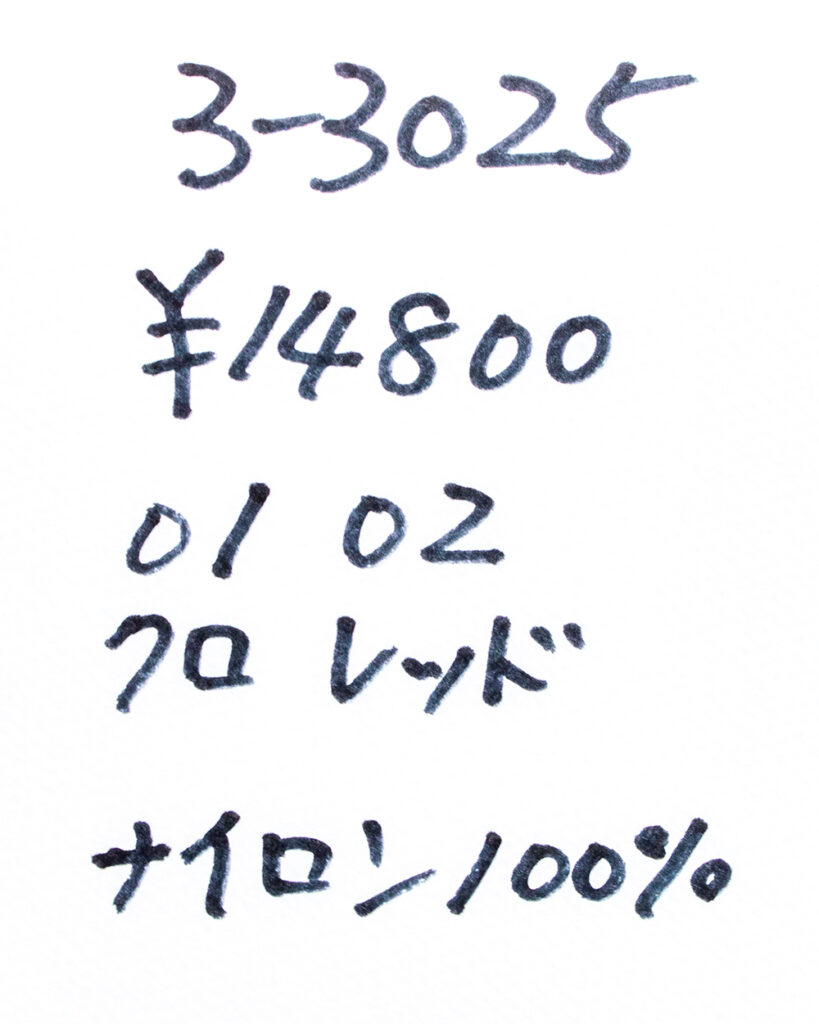 3-3025
¥14800
01 02
クロ レッド
ナイロン100%